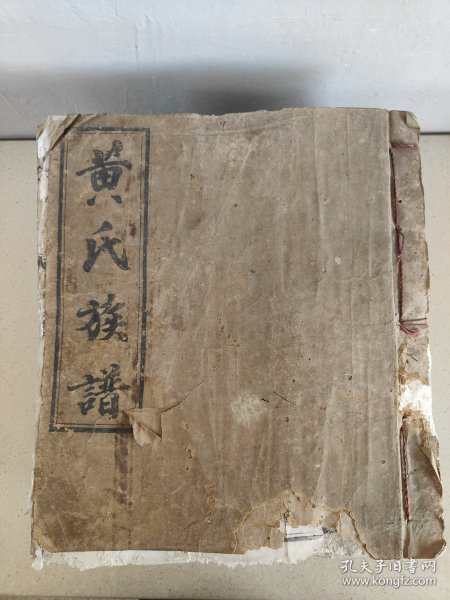 黄氏族譜
孔夫子旧书网
www.kongfz.com